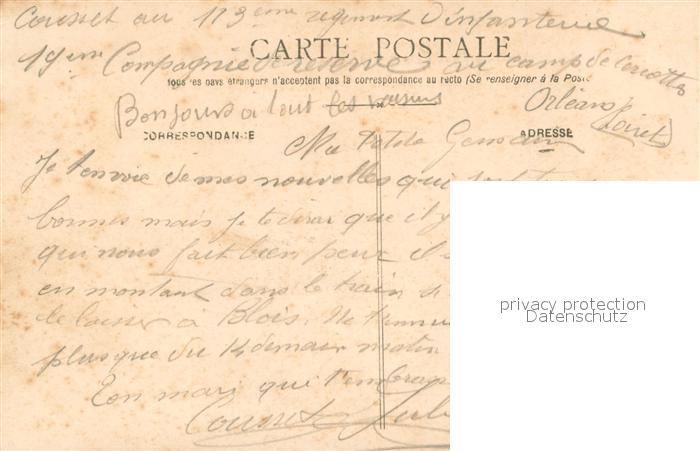 Cousset au 113eme regiment D'infanterie
19eme Compagnie de reserve au camp de Cercottes
CARTE POSTALE
Tous les pays étrangers n'acceptent pas la correspondance au recto (Se renseigner à la Poste
Orléans
Loiret)
Bonjours a tout les voisins
CORRESPONDANCE
ADRESSE
Ma Petite Germaine
Je t'envoie de mes nouvelles qui sont
bonnes mais je te dirai que il y
qui nous fait bien peur il
en montant dans le train
de laisser a Blois. Ne
plus que du 14 demain matin
Ton mari qui t'embrasse
Cousset
privacy protection
Datenschutz